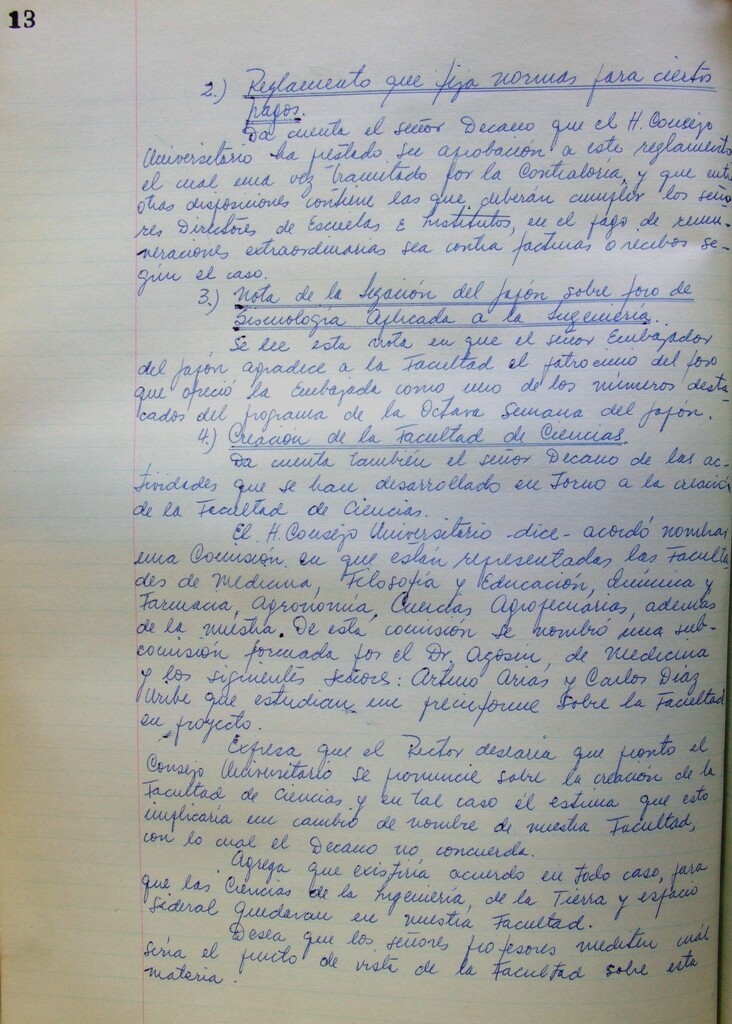 13
2.) Reglamento que fija normas para ciertos
pagos.
Da cuenta el señor Decano que el H. Consejo
Universitario ha prestado su aprobación a este reglamento
el cual una vez tramitado por la Contraloría, y que entre
otras disposiciones contiene las que deberán cumplir los seño
res Directores de Escuelas e Institutos, en el pago de remu-
neraciones extraordinarias sea contra facturas o recibos se-
gún el caso.
3.) Nota de la Legación del Japón sobre foro de
Sismología Aplicada a la Ingeniería.
Se lee esta nota en que el señor Embajador
del Japón agradece a la Facultad el patrocinio del foro
que ofreció la Embajada como uno de los números desta
cados del programa de la Octava Semana del Japón.
4.) Creación de la Facultad de Ciencias.
Da cuenta también el señor Decano de las ac-
tividades que se han desarrollado en torno a la creación
de la Facultad de Ciencias.
El H. Consejo Universitario -dice- acordó nombrar
una Comisión en que están representadas las Faculta
des de Medicina, Filosofía y Educación, Química y
Farmacia, Agronomía, Ciencias Agropecuarias, además
de la nuestra. De esta comisión se nombró una sub-
comisión formada por el Dr. Agosin, de Medicina
y los siguientes señores: Arturo Arias y Carlos Díaz
Uribe que estudian un preinforme sobre la Facultad
en proyecto.
Expresa que el Rector desearía que pronto el
Consejo Universitario se pronuncie sobre la creación de la
Facultad de Ciencias y en tal caso él estima que esto
implicaría un cambio de nombre de nuestra Facultad,
con lo cual el Decano no concuerda.
Agrega que existiría acuerdo en todo caso, para
que las Ciencias de la Ingeniería, de la Tierra y espacio
sideral quedaran en nuestra Facultad.
Desea que los señores profesores mediten cuál
sería el punto de vista de la Facultad sobre esta
materia.